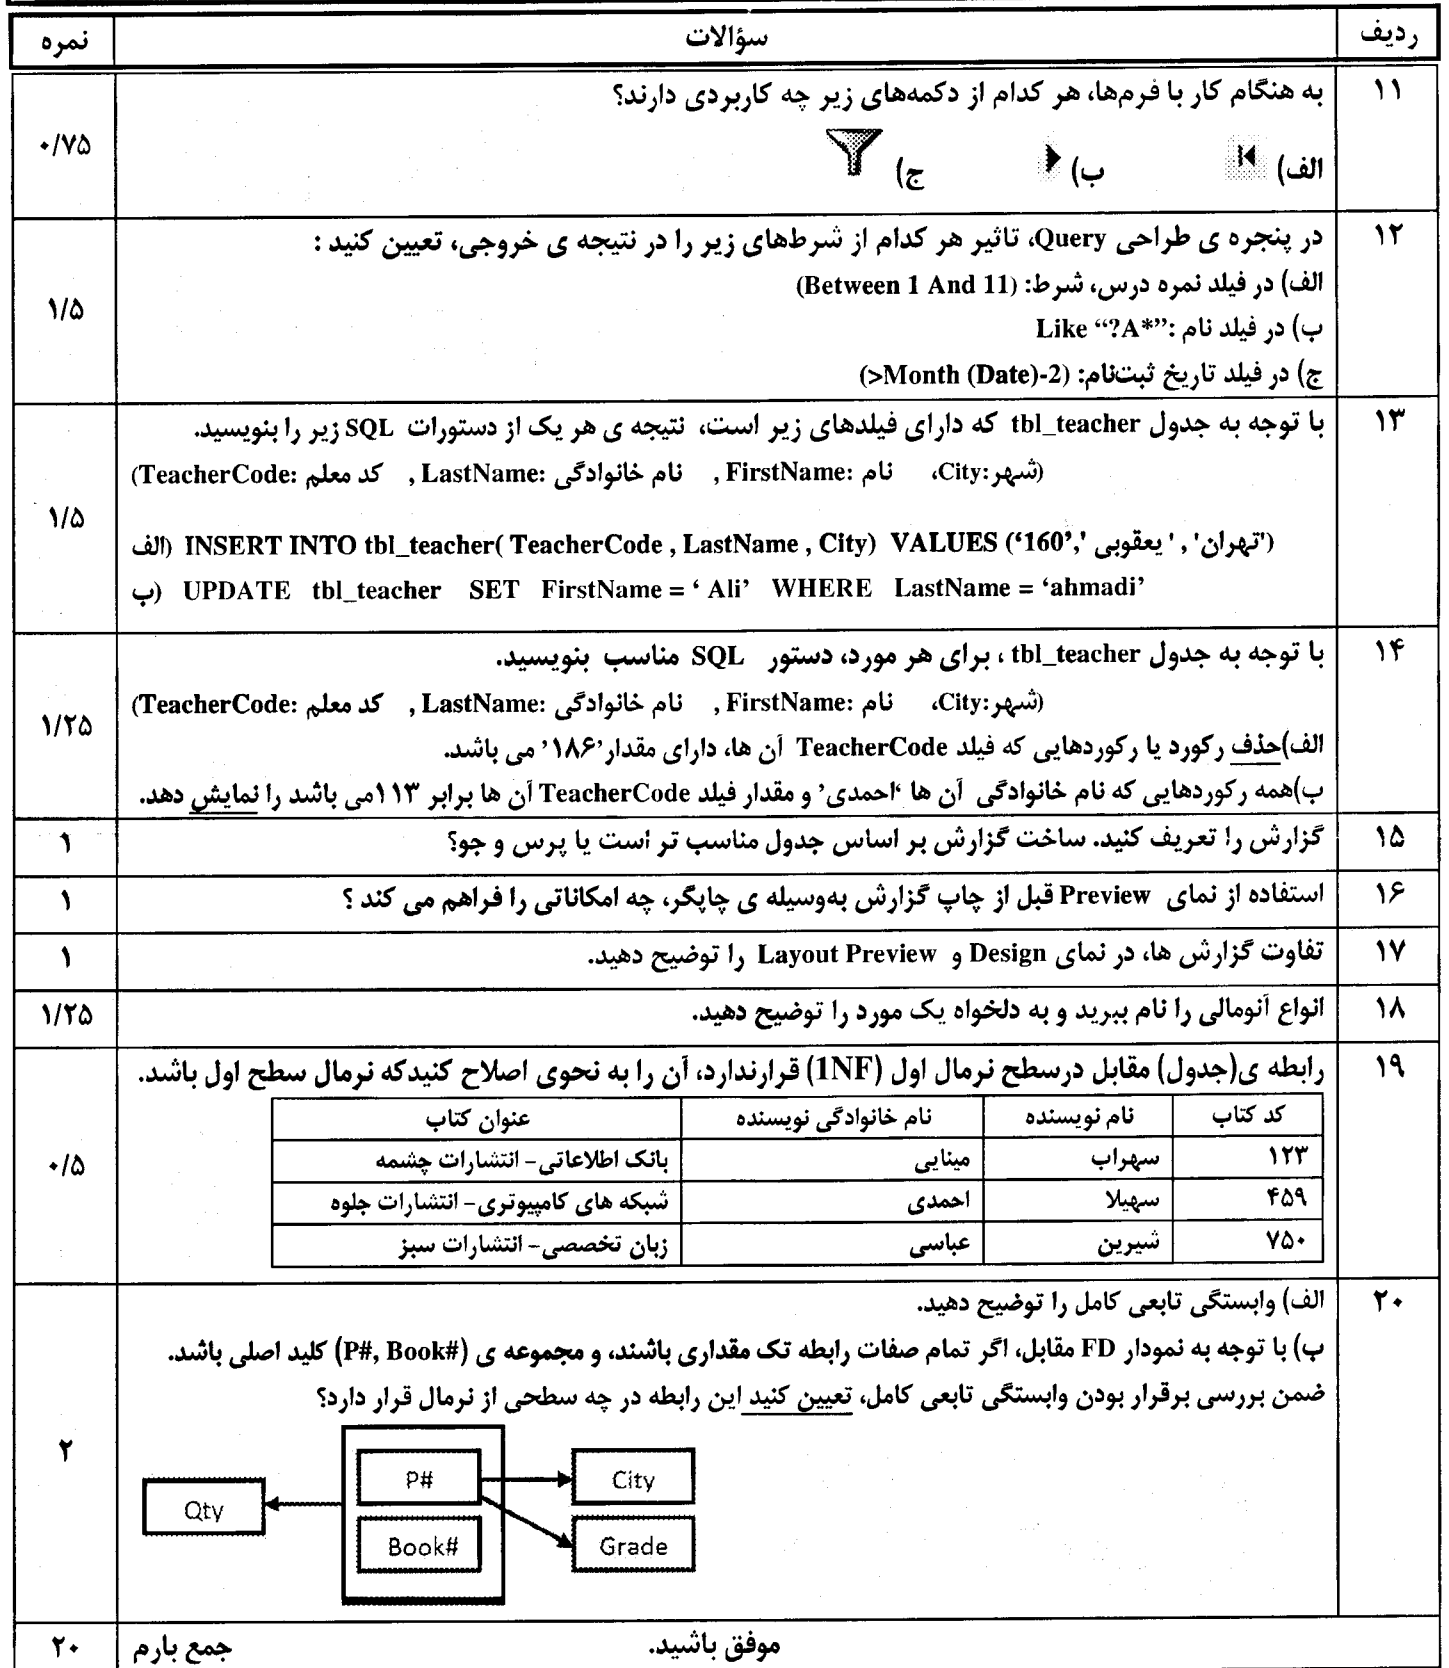 ردیف سؤالات نمره
۱۱ به هنگام کار با فرم‌ها، هر کدام از دکمه‌های زیر چه کاربردی دارند؟ ۰/۷۵
الف) ب) ج)
۱۲ در پنجره ی طراحی Query، تاثیر هر کدام از شرط‌های زیر را در نتیجه ی خروجی، تعیین کنید :
الف) در فیلد نمره درس، شرط: (Between 1 And 11) ۱/۵
ب) در فیلد نام :Like “?A*”
ج) در فیلد تاریخ ثبت‌نام: (>Month (Date)-2)
۱۳ با توجه به جدول tbl_teacher که دارای فیلدهای زیر است، نتیجه ی هر یک از دستورات SQL زیر را بنویسید.
(شهر:City، نام :FirstName , نام خانوادگی :LastName , کد معلم :TeacherCode) ۱/۵
الف) INSERT INTO tbl_teacher( TeacherCode , LastName , City) VALUES (‘160’,' یعقوبی ' , 'تهران')
ب) UPDATE tbl_teacher SET FirstName = ‘ Ali’ WHERE LastName = ‘ahmadi’
۱۴ با توجه به جدول tbl_teacher ، برای هر مورد، دستور SQL مناسب بنویسید.
(شهر:City، نام :FirstName , نام خانوادگی :LastName , کد معلم :TeacherCode) ۱/۲۵
الف)حذف رکورد یا رکوردهایی که فیلد TeacherCode آن ها، دارای مقدار’۱۸۶’ می باشد.
ب)همه رکوردهایی که نام خانوادگی آن ها ‘احمدی’ و مقدار فیلد TeacherCode آن ها برابر ۱۱۳می باشد را نمایش دهد.
۱۵ گزارش را تعریف کنید. ساخت گزارش بر اساس جدول مناسب تر است یا پرس و جو؟ ۱
۱۶ استفاده از نمای Preview قبل از چاپ گزارش به‌وسیله ی چاپگر، چه امکاناتی را فراهم می کند ؟ ۱
۱۷ تفاوت گزارش ها، در نمای Design و Layout Preview را توضیح دهید. ۱
۱۸ انواع آنومالی را نام ببرید و به دلخواه یک مورد را توضیح دهید. ۱/۲۵
۱۹ رابطه ی(جدول) مقابل درسطح نرمال اول (1NF) قرارندارد، آن را به نحوی اصلاح کنیدکه نرمال سطح اول باشد. ۰/۵
کد کتاب نام نویسنده نام خانوادگی نویسنده عنوان کتاب
۱۲۳ سهراب مینایی بانک اطلاعاتی- انتشارات چشمه
۴۵۹ سهیلا احمدی شبکه های کامپیوتری- انتشارات جلوه
۷۵۰ شیرین عباسی زبان تخصصی- انتشارات سبز
۲۰ الف) وابستگی تابعی کامل را توضیح دهید.
ب) با توجه به نمودار FD مقابل، اگر تمام صفات رابطه تک مقداری باشند، و مجموعه ی (P#, Book#) کلید اصلی باشد.
ضمن بررسی برقرار بودن وابستگی تابعی کامل، تعیین کنید این رابطه در چه سطحی از نرمال قرار دارد؟ ۲
P# City
Qty
Book# Grade
موفق باشید. جمع بارم ۲۰